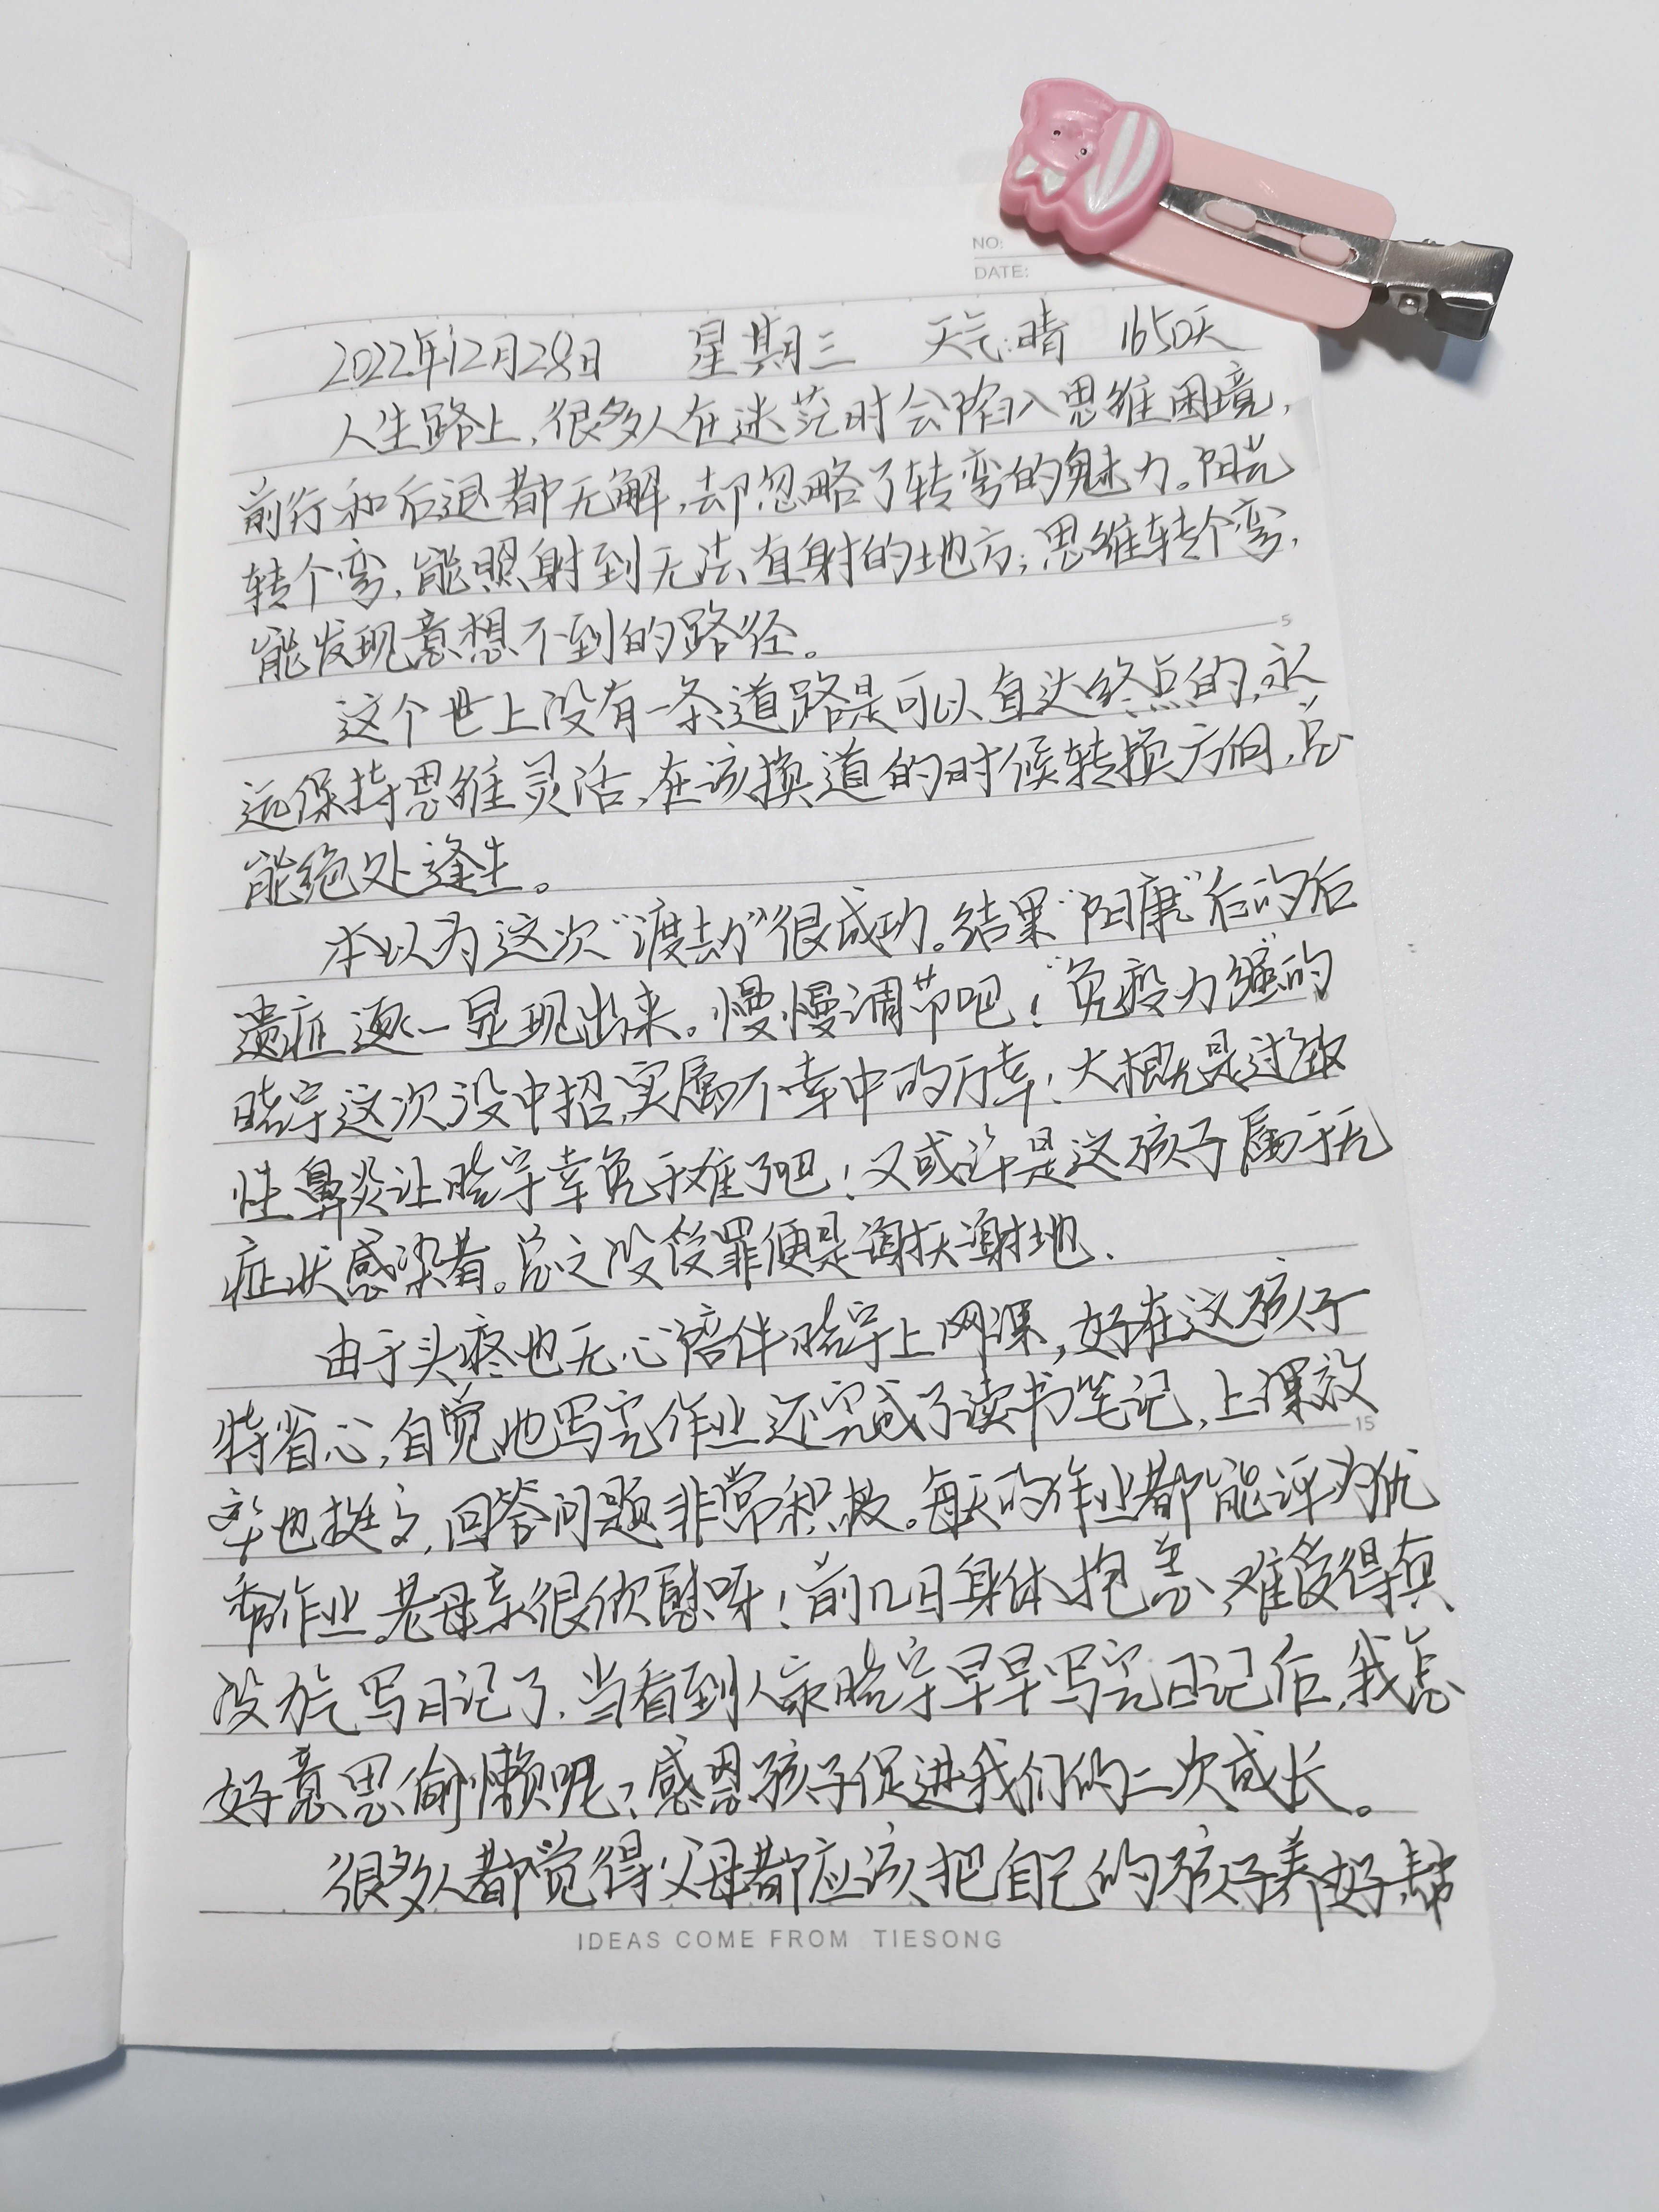 NO:
DATE:
2022年12月28日 星期三 天气:晴 1650天
人生路上,很多人在迷茫时会陷入思维困境,
前行和后退都无解,却忽略了转弯的魅力。阳光
转个弯,能照射到无法直射的地方;思维转个弯,
能发现意想不到的路径。
5
这个世上没有一条道路是可以直达终点的,永
远保持思维灵活,在该换道的时候转换方向,总
能绝处逢生。
本以为这次“渡劫”很成功。结果“阳康”后的后
遗症逐一显现出来。慢慢调节吧!免疫力强的
晓宇这次没中招,实属不幸中的万幸!大概是过敏
性鼻炎让晓宇幸免于难了吧!又或许是这孩子属于无
症状感染者。总之没受罪便是谢天谢地.
由于头疼也无心陪伴晓宇上网课,好在这孩子
特省心,自觉地写完作业还完成了读书笔记,上课效
15
率也挺高,回答问题非常积极。每天的作业都能评为优
秀作业。老母亲很欣慰呀!前几日身体抱恙,难受得真
没力气写日记了.当看到人家晓宇早早写完日记后,我怎
好意思偷懒呢?感恩孩子促进我们的二次成长。
很多人都觉得父母都应该把自己的孩子养好,帮
IDEAS COME FROM TIESONG